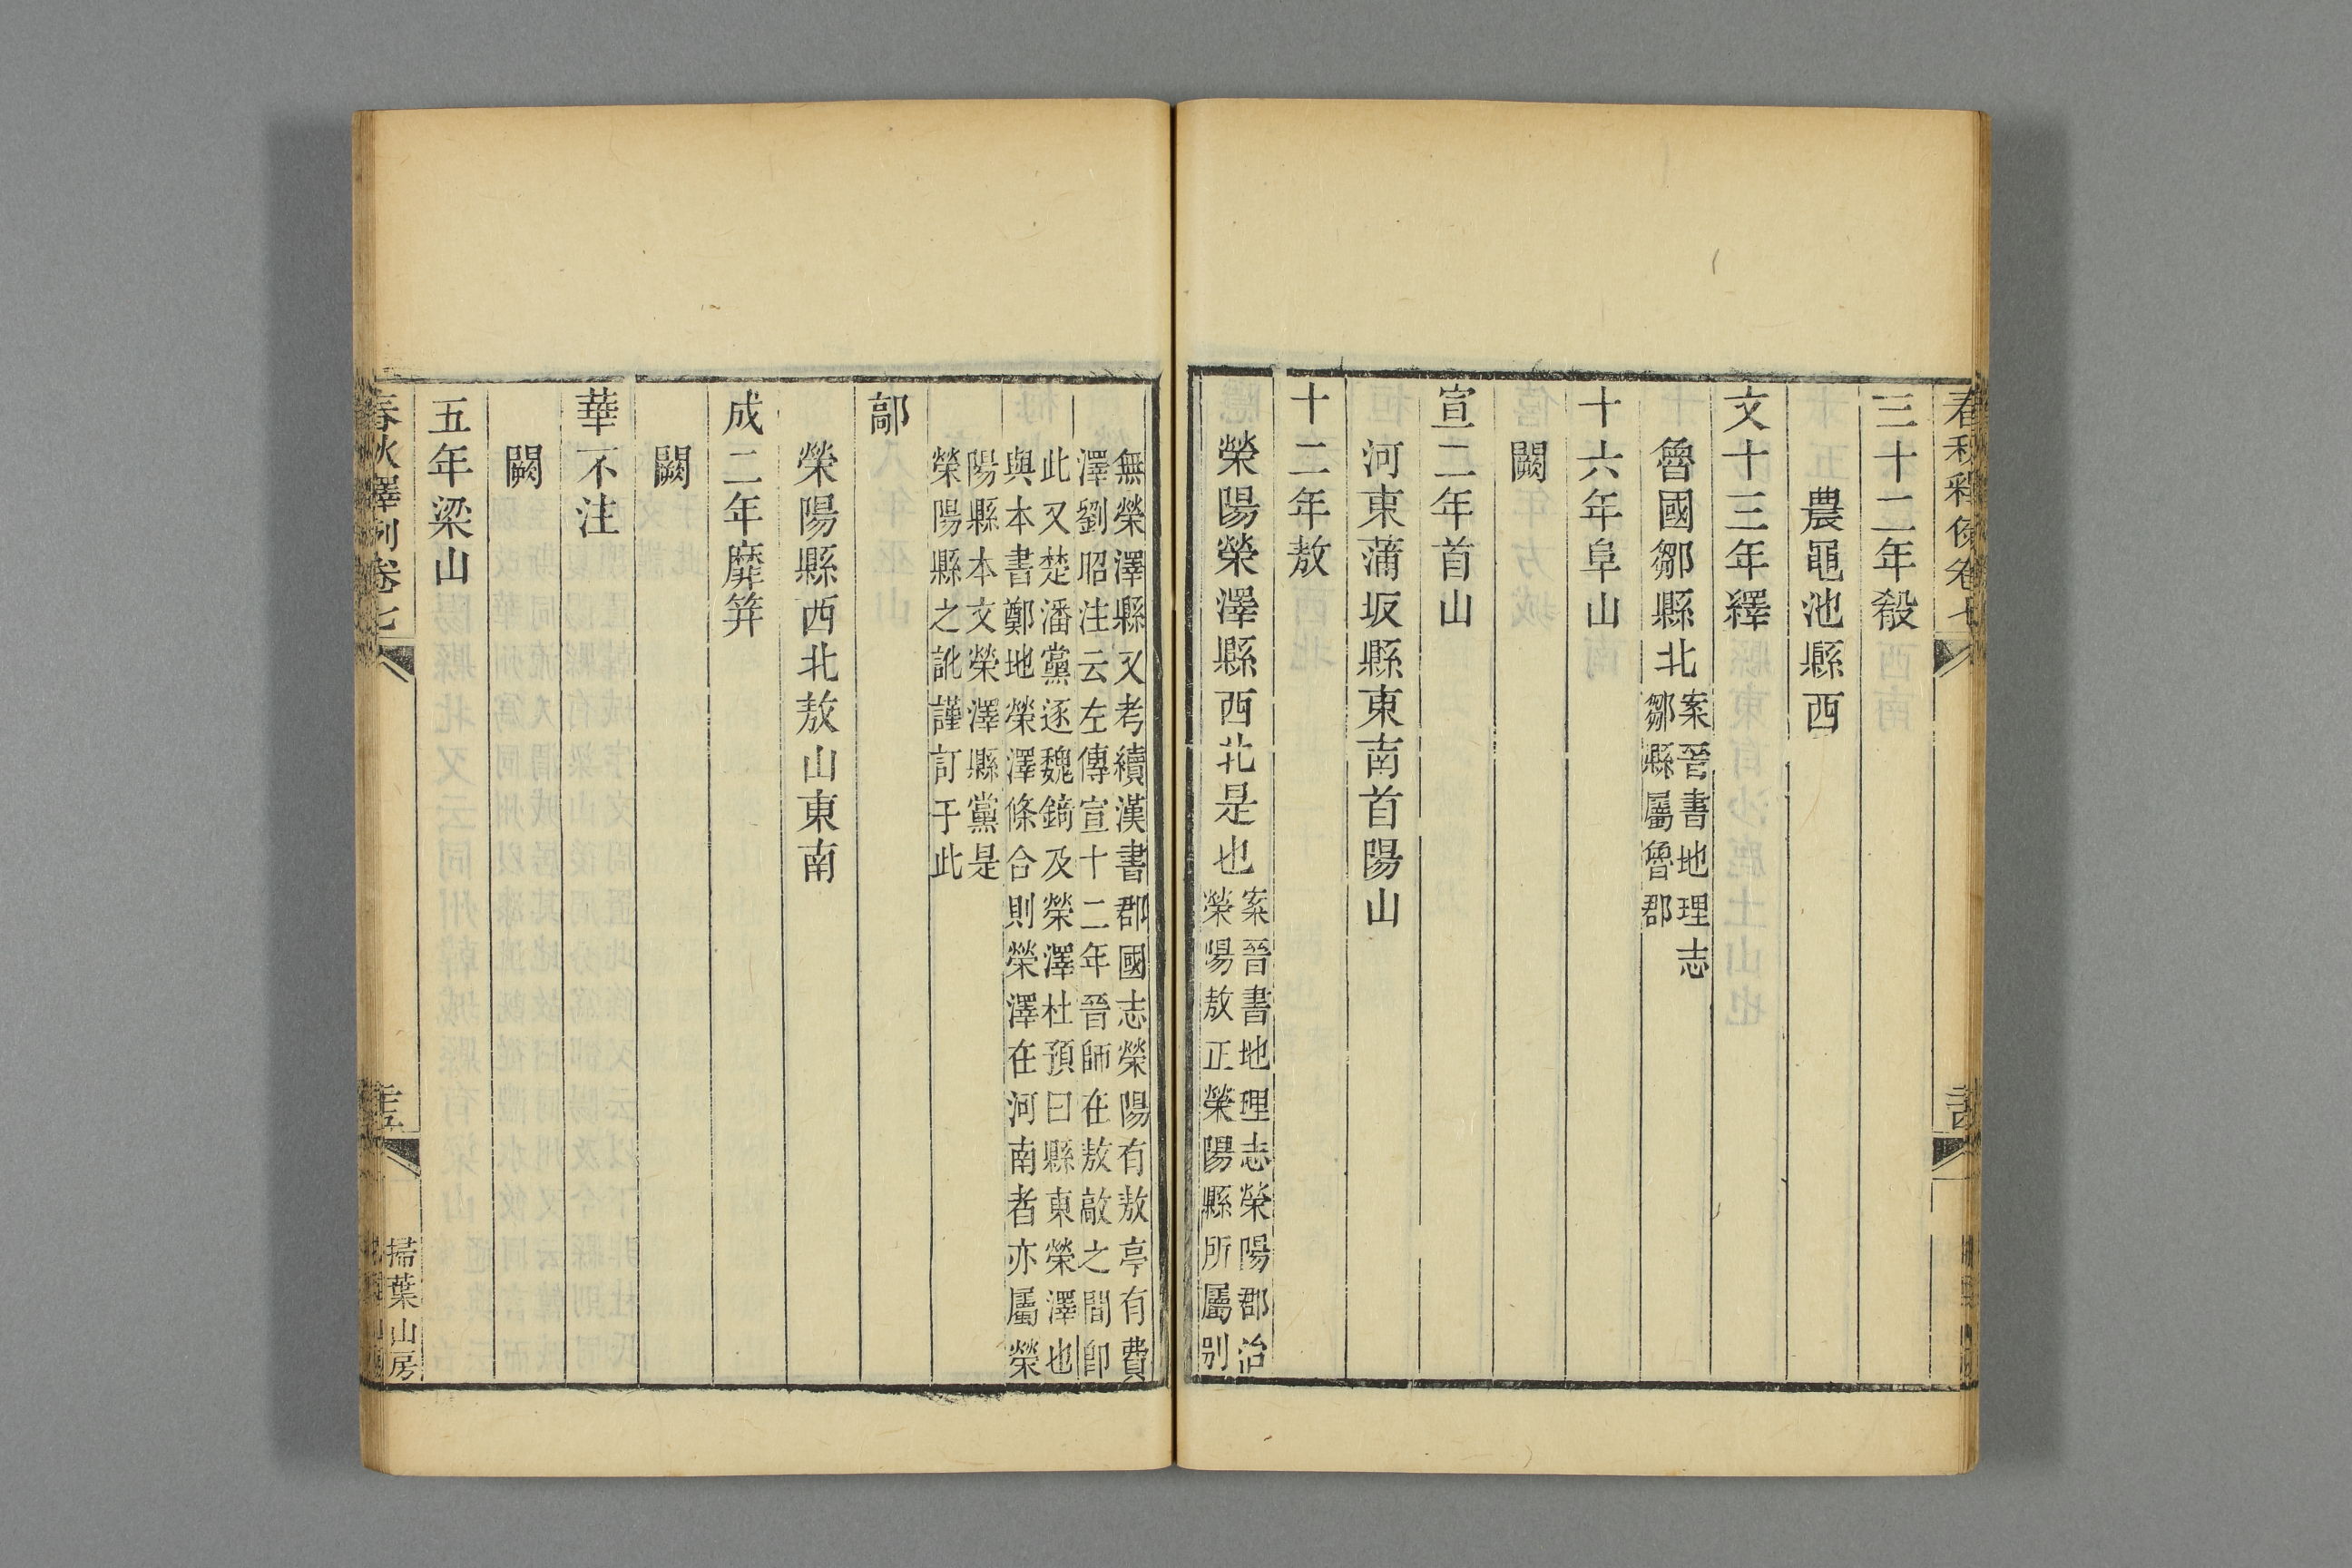 三十二年殽
農黽池縣西
文十三年繹
魯國鄒縣北案晉書地理志
鄒縣屬魯郡
十六年阜山
闕
宣二年首山
河東蒲坂縣東南首陽山
十二年敖
榮陽榮澤縣西北是也案晉書地理志榮陽郡治
榮陽敖正榮陽縣所屬別
無榮澤縣又考續漢書郡國志榮陽有敖亭有費
澤劉昭注云左傳宣十二年晉師在敖敵之間卽
此又楚潘黨逐魏錡及榮澤杜預曰縣東榮澤也
與本書鄭地榮澤條合則榮澤在河南者亦屬榮
陽縣本文榮澤縣黨是
榮陽縣之訛謹訂于此
鄗
榮陽縣西北敖山東南
成二年靡筓
闕
華不注
闕
五年梁山
春秋釋例卷七
掃葉山房